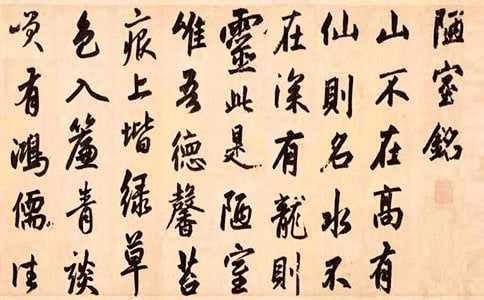 陋室銘
山不在高有
仙則名水不
在深有龍則
靈此是陋室
唯吾德馨苔
痕上堦緑草
色入簾青談
咲有鴻儒往